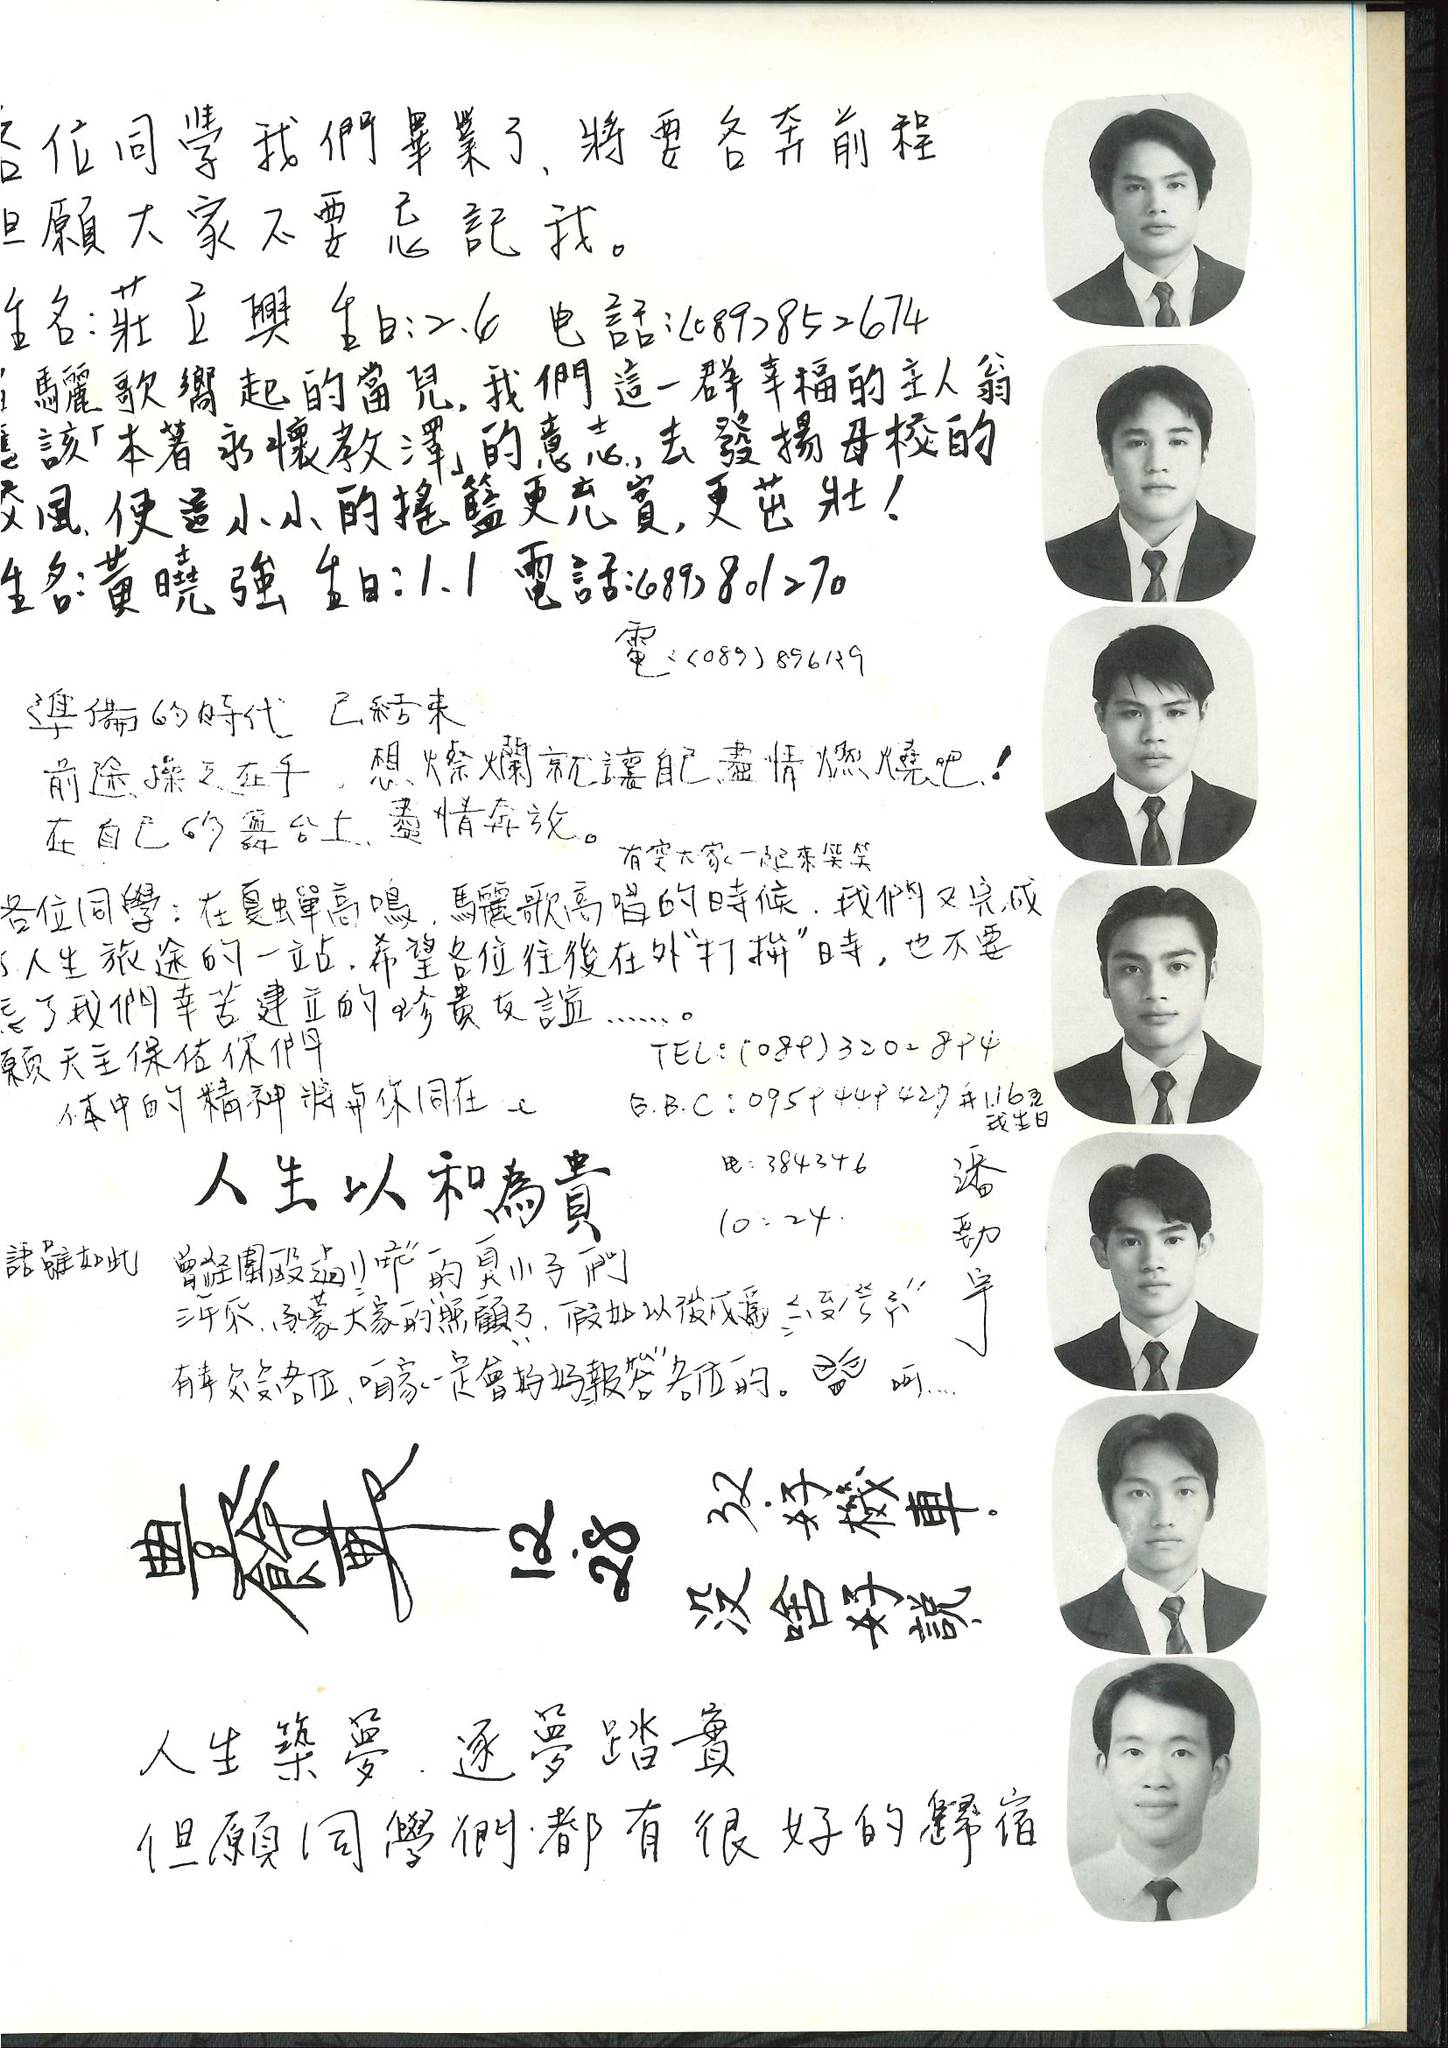 各位同學我們畢業了、將要各奔前程
但願大家不要忘記我。
生名:莊立興 生日:2.6 电話:(089)852674
驪歌嚮起的當兒,我們這一群幸福的主人翁
應該「本著永懷教澤」的意志,去發揚母校的
校風,使這小小的搖籃更充實,更茁壯!
生名:黃曉強 生日:1.1 電話:(089)801270
電:(089)896129
準備的時代 已結束
前途操之在手,想燦爛就讓自己盡情燃燒吧!
在自己的舞台上、盡情奔放。
有空大家一起來笑笑
各位同學:在夏蟬高鳴,驪歌高唱的時候,我們又完成
了人生旅途的一站,希望各位往後在外“打拚”時,也不要
忘了我們辛苦建立的珍貴友誼……。
願天主保佑你們
TEL:(089)320894
体中的精神將與你同在
B.B.C:0959449427 1.16
我生日
人生以和為貴
电:384346
10:24.
潘勁宇
話雖如此
曾經圍毆過小 的臭小子們
三年來,承蒙大家的照顧了,假如以後成為
各位,咱家一定會好好“報答”各位的。 呵....
12.28
32.好機車.
沒啥好說
人生築夢.逐夢踏實
但願同學們.都有很好的歸宿